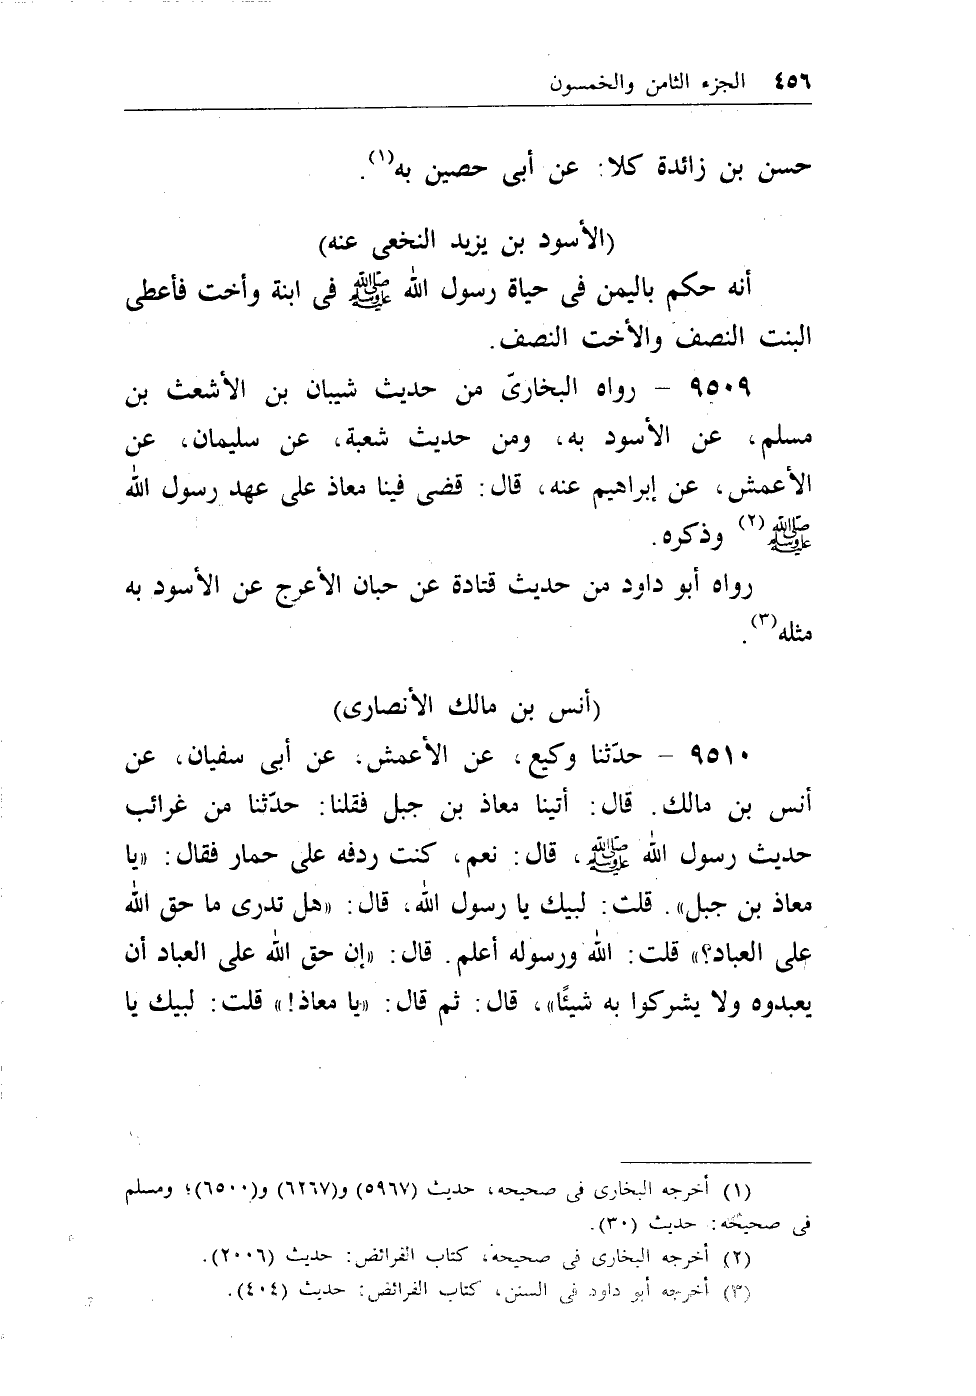 ٤٥٦ الجزء الثامن والخمسون
حسن بن زائدة كلا: عن أبى حصين به(١).
(الأسود بن يزيد النخعى عنه)
أنه حكم باليمن فى حياة رسول الله ﷺ فى ابنة وأخت فأعطى
البنت النصف والأخت النصف.
٩٥٠٩ - رواه البخارىّ من حديث شيبان بن الأشعث بن
مسلم، عن الأسود به، ومن حديث شعبة، عن سليمان، عن
الأعمش، عن إبراهيم عنه، قال: قضى فينا معاذ على عهد رسول الله
ﷺ(٢) وذكره.
رواه أبو داود من حديث قتادة عن حبان الأعرج عن الأسود به
مثله(٣).
(أنس بن مالك الأنصارى)
٩٥١٠ - حدّثنا وكيع، عن الأعمش، عن أبى سفيان، عن
أنس بن مالك. قال: أتينا معاذ بن جبل فقلنا: حدّثنا من غرائب
حديث رسول الله ﷺ، قال: نعم، كنت ردفه على حمار فقال: «يا
معاذ بن جبل». قلت: لبيك يا رسول الله، قال: «هل تدرى ما حق الله
على العباد؟» قلت: الله ورسوله أعلم. قال: «إن حق الله على العباد أن
يعبدوه ولا يشركوا به شيئًا»، قال: ثم قال: «يا معاذ!» قلت: لبيك يا
(١) أخرجه البخارى فى صحيحه، حديث (٥٩٦٧) و(٦٢٦٧) و(٦٥٠٠)؛ ومسلم
فى صحيحه: حديث (٣٠).
(٢) أخرجه البخارى فى صحيحه، كتاب الفرائض: حديث (٢٠٠٦).
(٣) أخرجه أبو داود فى السنن، كتاب الفرائض: حديث (٤٠٤).